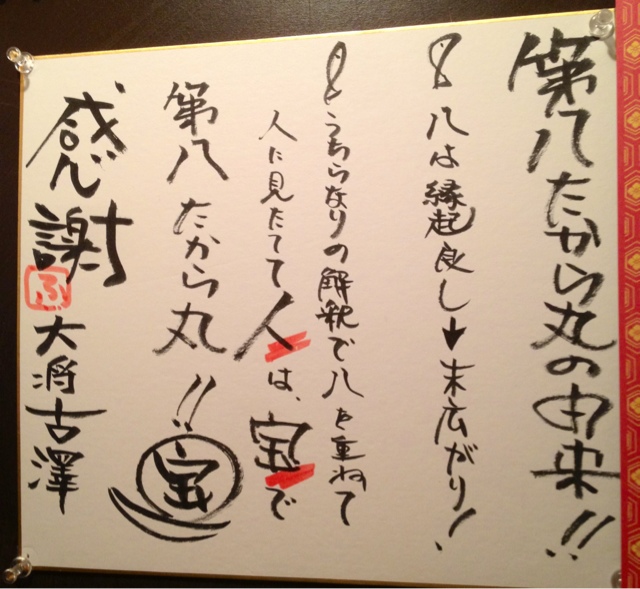 第八たから丸の由来!!
8 八は縁起良し→末広がり!
8 うちらなりの解釈で八を重ねて
人に見たてて人は、宝で
第八たから丸!!
宝
感謝
ふ
大将古澤